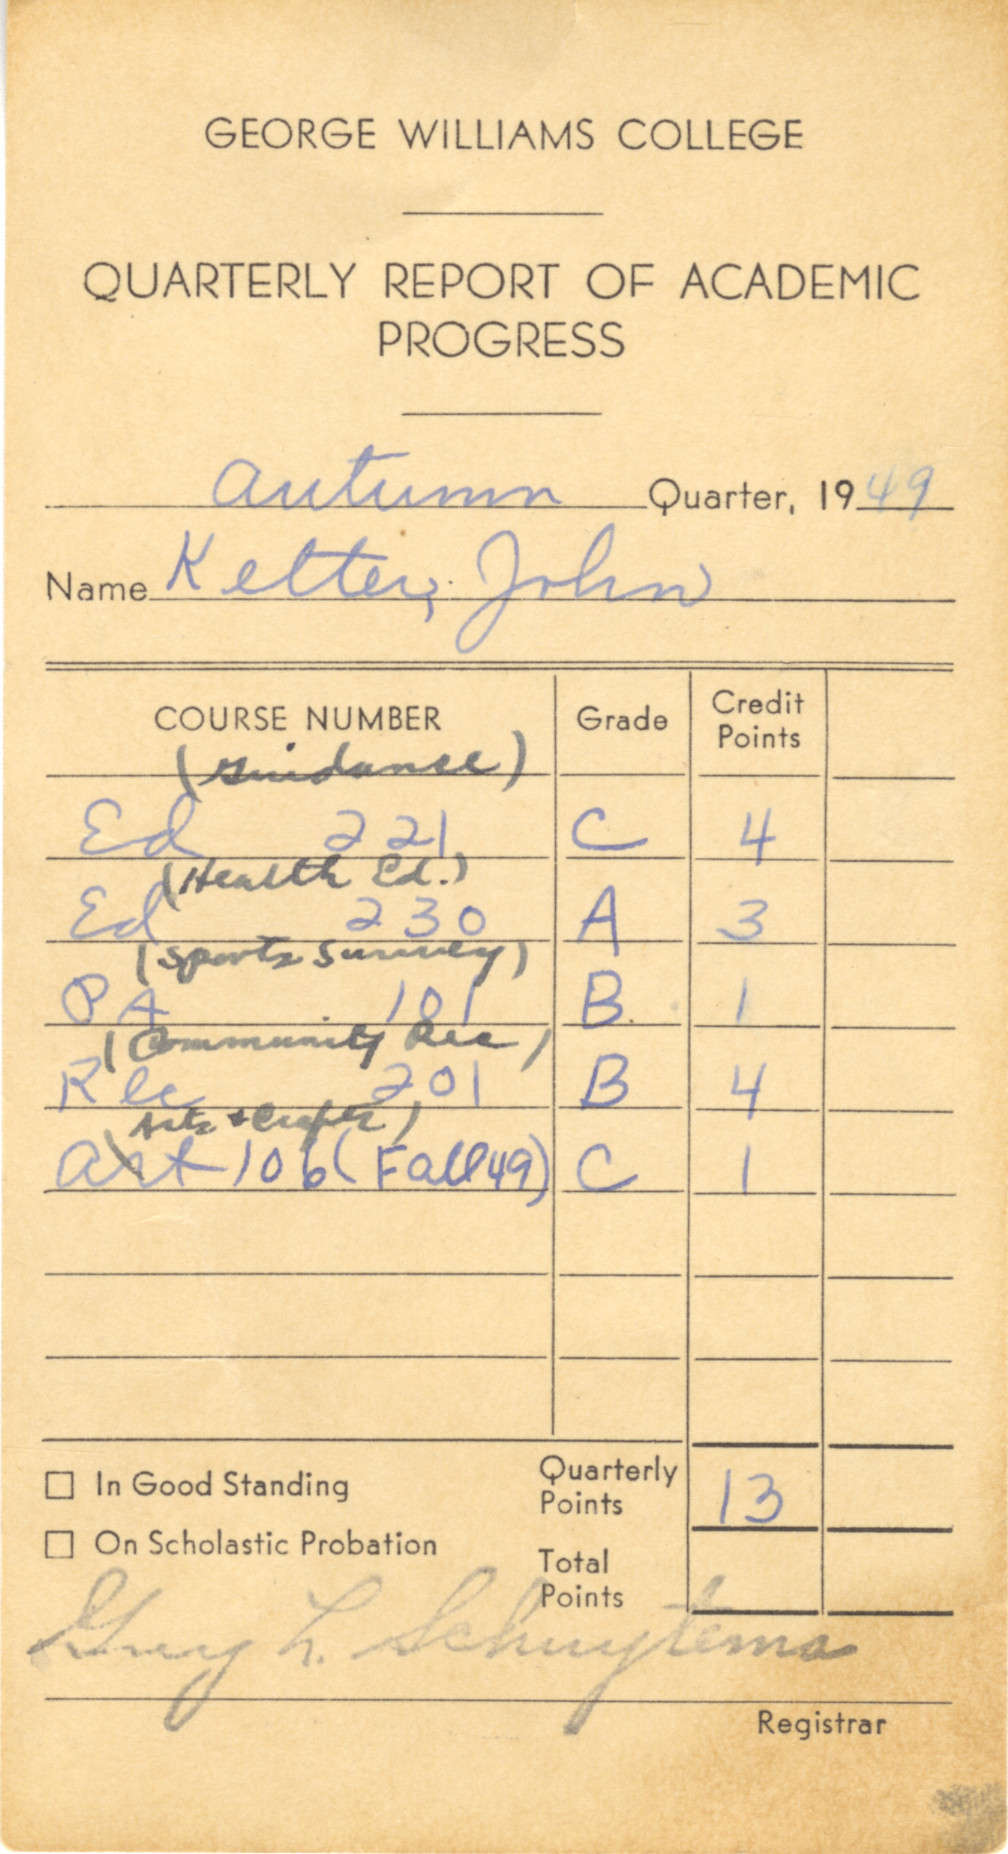 GEORGE WILLIAMS COLLEGE
QUARTERLY REPORT OF ACADEMIC
PROGRESS
Autumn Quarter, 1949
Name Ketter, John
COURSE NUMBER Grade Credit Points
(Guidance)
Ed 221 C 4
(Health Ed.)
Ed 230 A 3
(Sports Survey)
PA 101 B 1
(Community Rec)
Rec 201 B 4
(Arts + Crafts)
Art 106 (Fall 49) C 1
In Good Standing
Quarterly Points 13
On Scholastic Probation
Total Points
L. Schuytema
Registrar